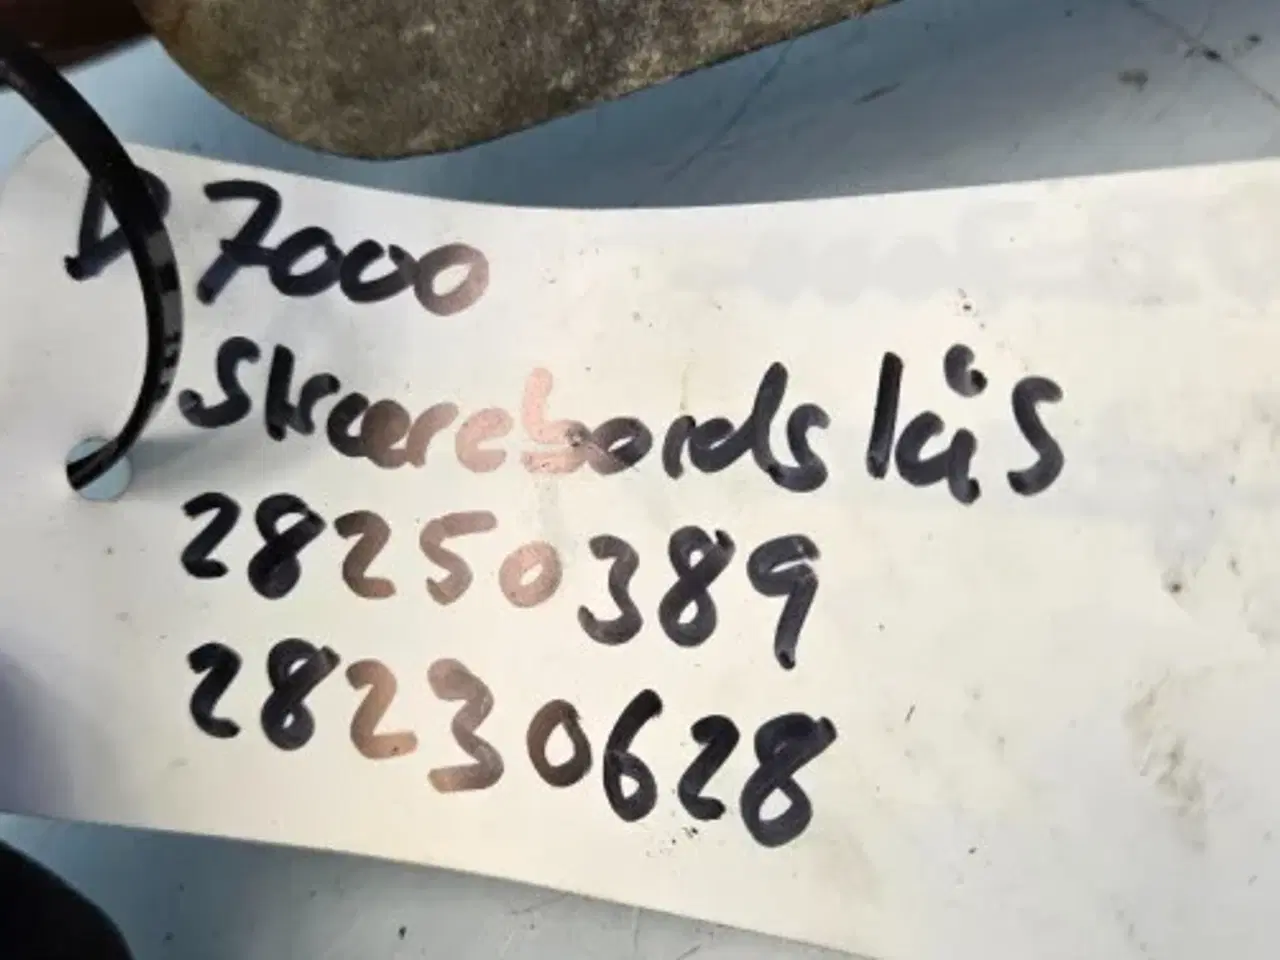 D7000
Skærebordslås
28250389
28230628